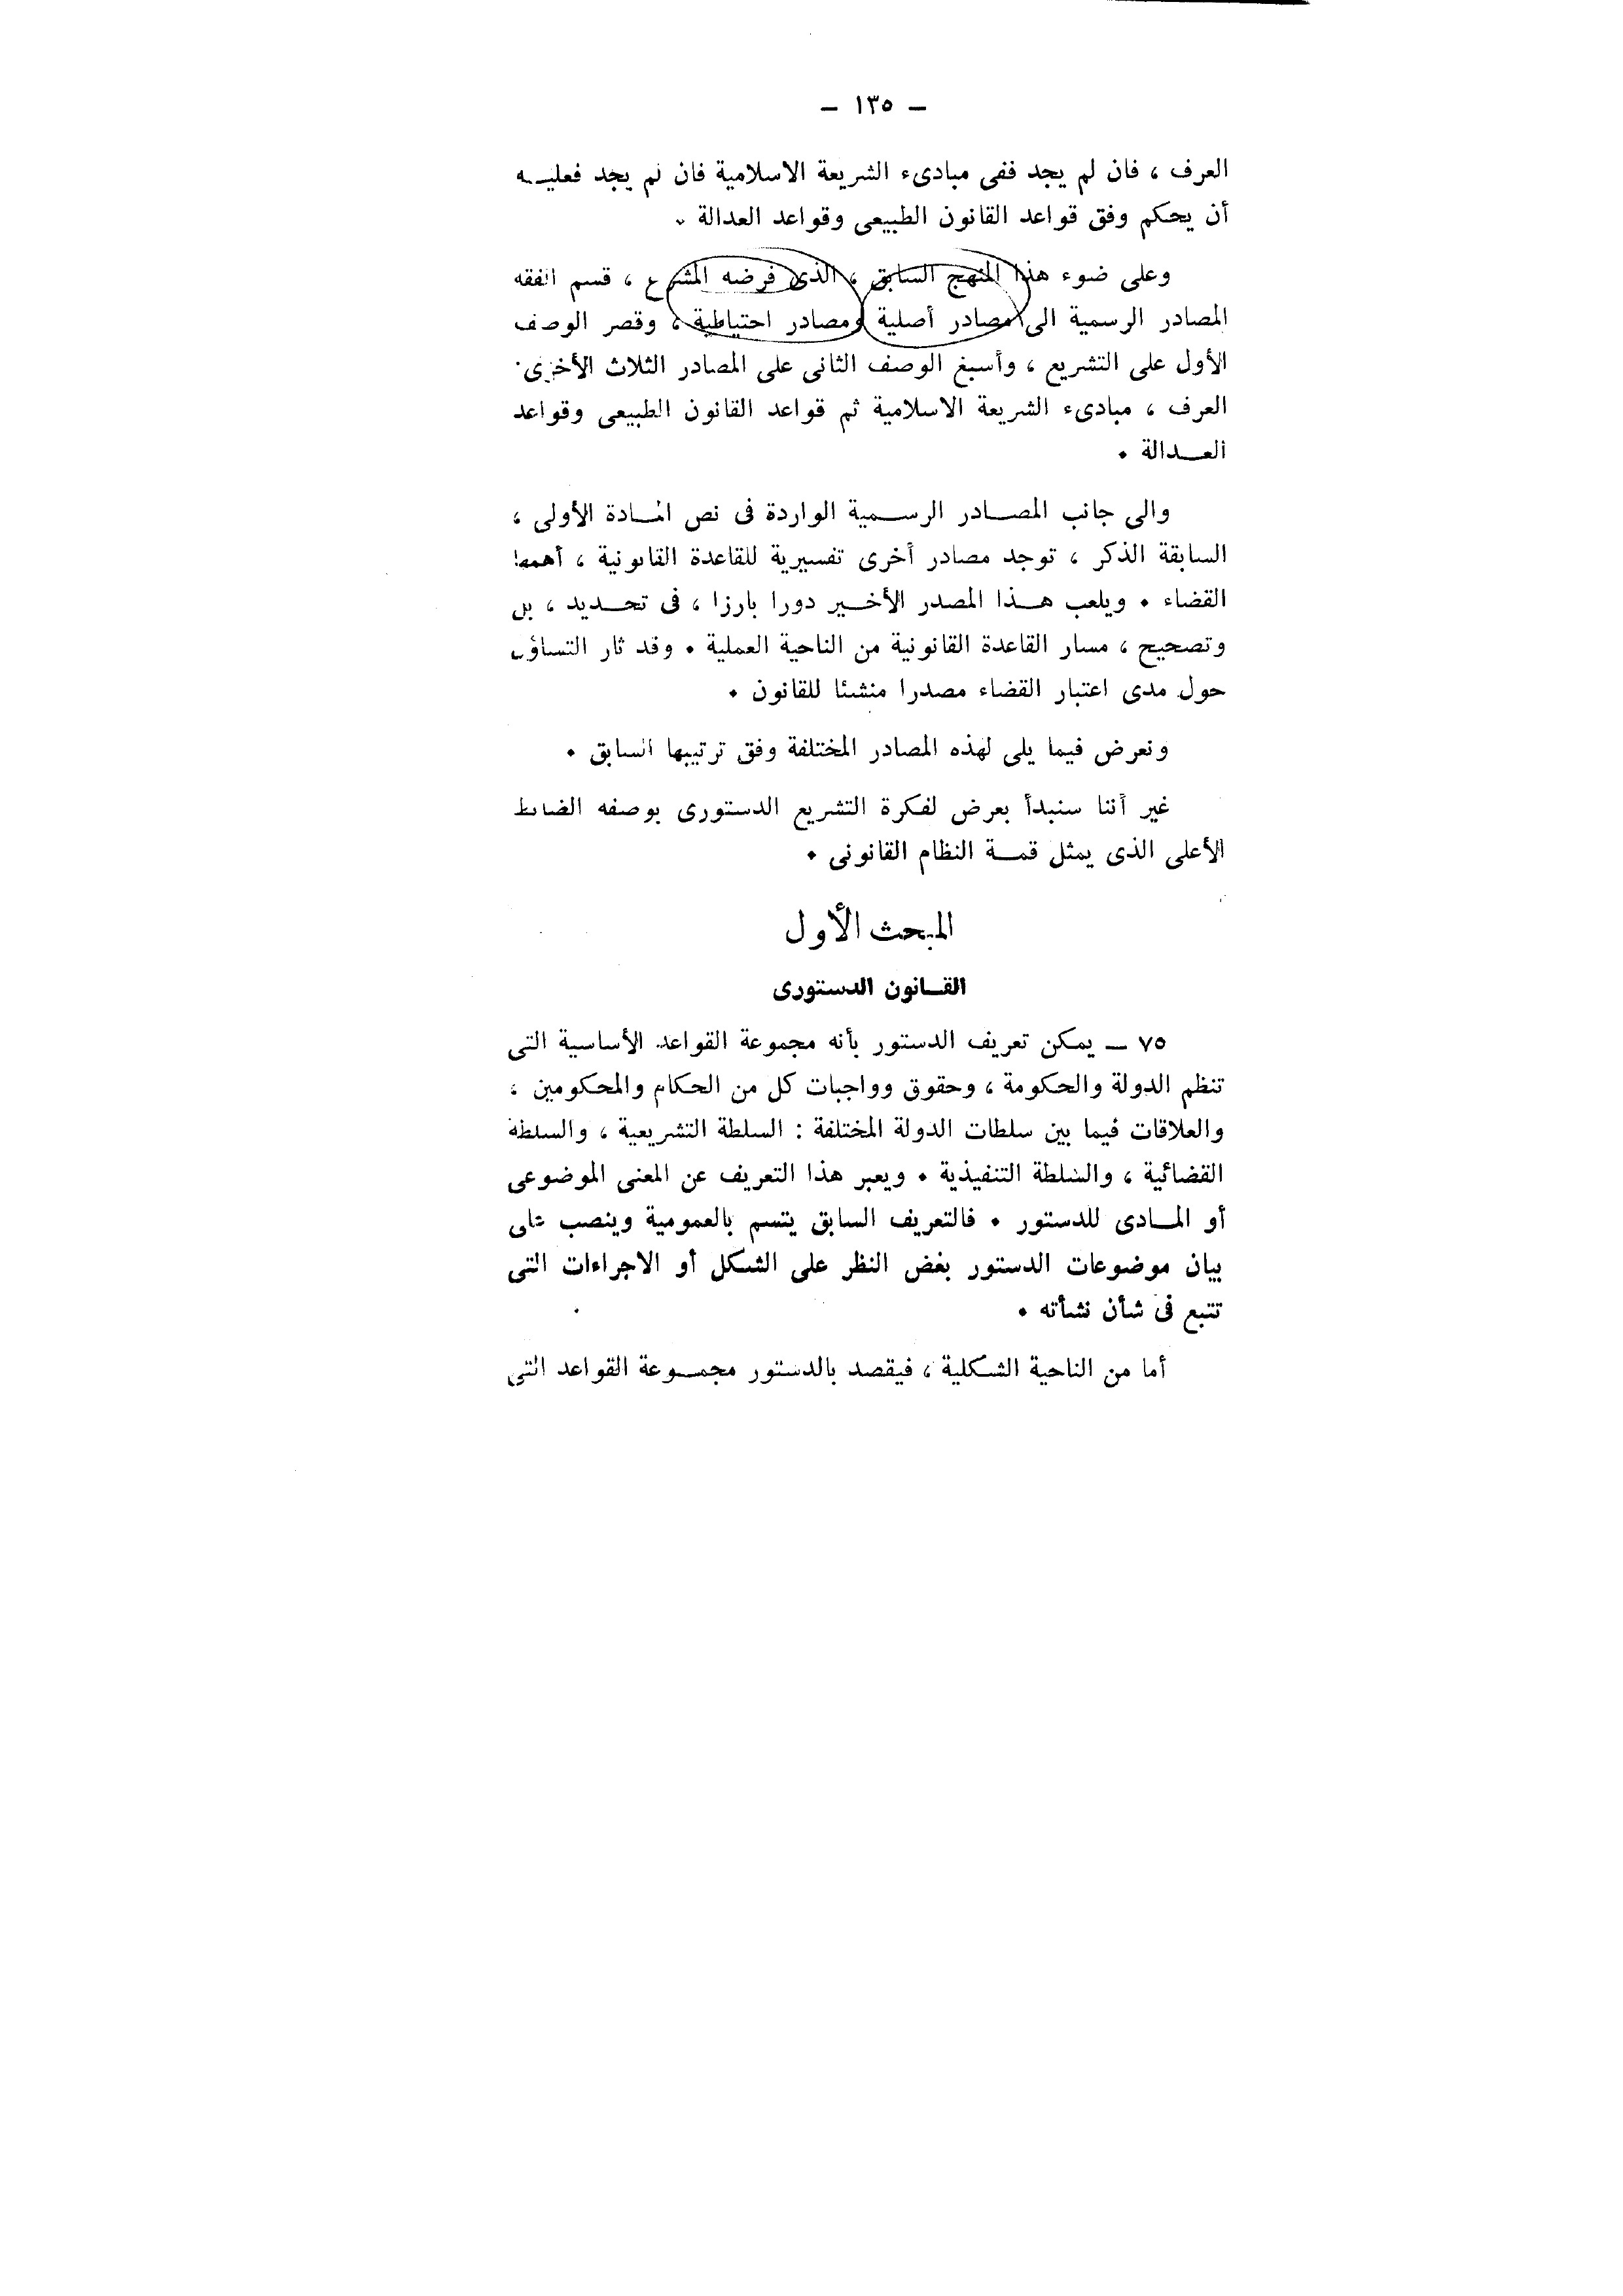 – ١٣٥ –
العرف ، فان لم يجد ففى مبادىء الشريعة الاسلامية فان لم يجد فعليـه
أن يحكم وفق قواعد القانون الطبيعى وقواعد العدالة .
وعلى ضوء هذا المنهج السابق ، الذى فرضه المشرع ، قسم الفقه
المصادر الرسمية الى مصادر أصلية ومصادر احتياطية ، وقصر الوصف
الأول على التشريع ، وأسبغ الوصف الثانى على المصادر الثلاث الأخرى .
العرف ، مبادىء الشريعة الاسلامية ثم قواعد القانون الطبيعى وقواعد
العــدالة .
والى جانب المصــادر الرســمية الواردة فى نص المــادة الأولى ،
السابقة الذكر ، توجد مصادر أخرى تفسيرية للقاعدة القانونية ، أهمها
القضاء . ويلعب هــذا المصدر الأخــير دورا بارزا ، فى تحــديد ، بل
وتصحيح ، مسار القاعدة القانونية من الناحية العملية . وقد ثار التساؤل
حول مدى اعتبار القضاء مصدرا منشئا للقانون .
ونعرض فيما يلى لهذه المصادر المختلفة وفق ترتيبها السابق .
غير أننا سنبدأ بعرض لفكرة التشريع الدستورى بوصفه الضابط
الأعلى الذى يمثل قمــة النظام القانونى .
المبحث الأول
القــانون الدستورى
٧٥ ــ يمكن تعريف الدستور بأنه مجموعة القواعد الأساسية التى
تنظم الدولة والحكومة ، وحقوق وواجبات كل من الحكام والمحكومين ،
والعلاقات فيما بين سلطات الدولة المختلفة : السلطة التشريعية ، والسلطة
القضائية ، والسلطة التنفيذية . ويعبر هذا التعريف عن المعنى الموضوعى
أو المــادى للدستور . فالتعريف السابق يتسم بالعمومية وينصب على
بيان موضوعات الدستور بغض النظر على الشكل أو الاجراءات التى
تتبع فى شأن نشأته .
أما من الناحية الشكلية ، فيقصد بالدستور مجمــوعة القواعد التى